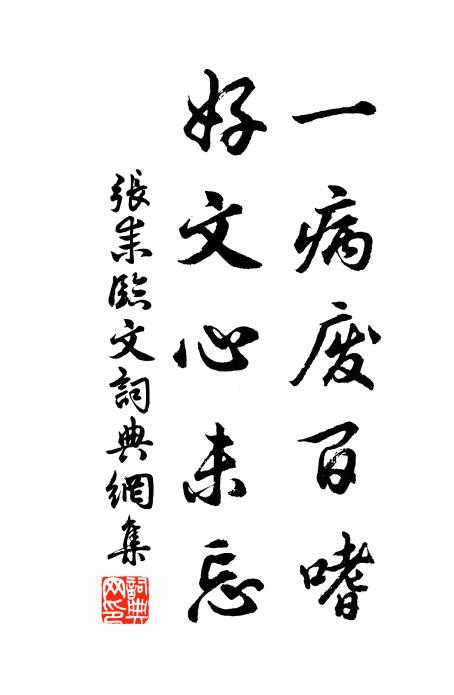 一病废百嗜
好文心未忘
張耒臨文詞典網集
詞典网印